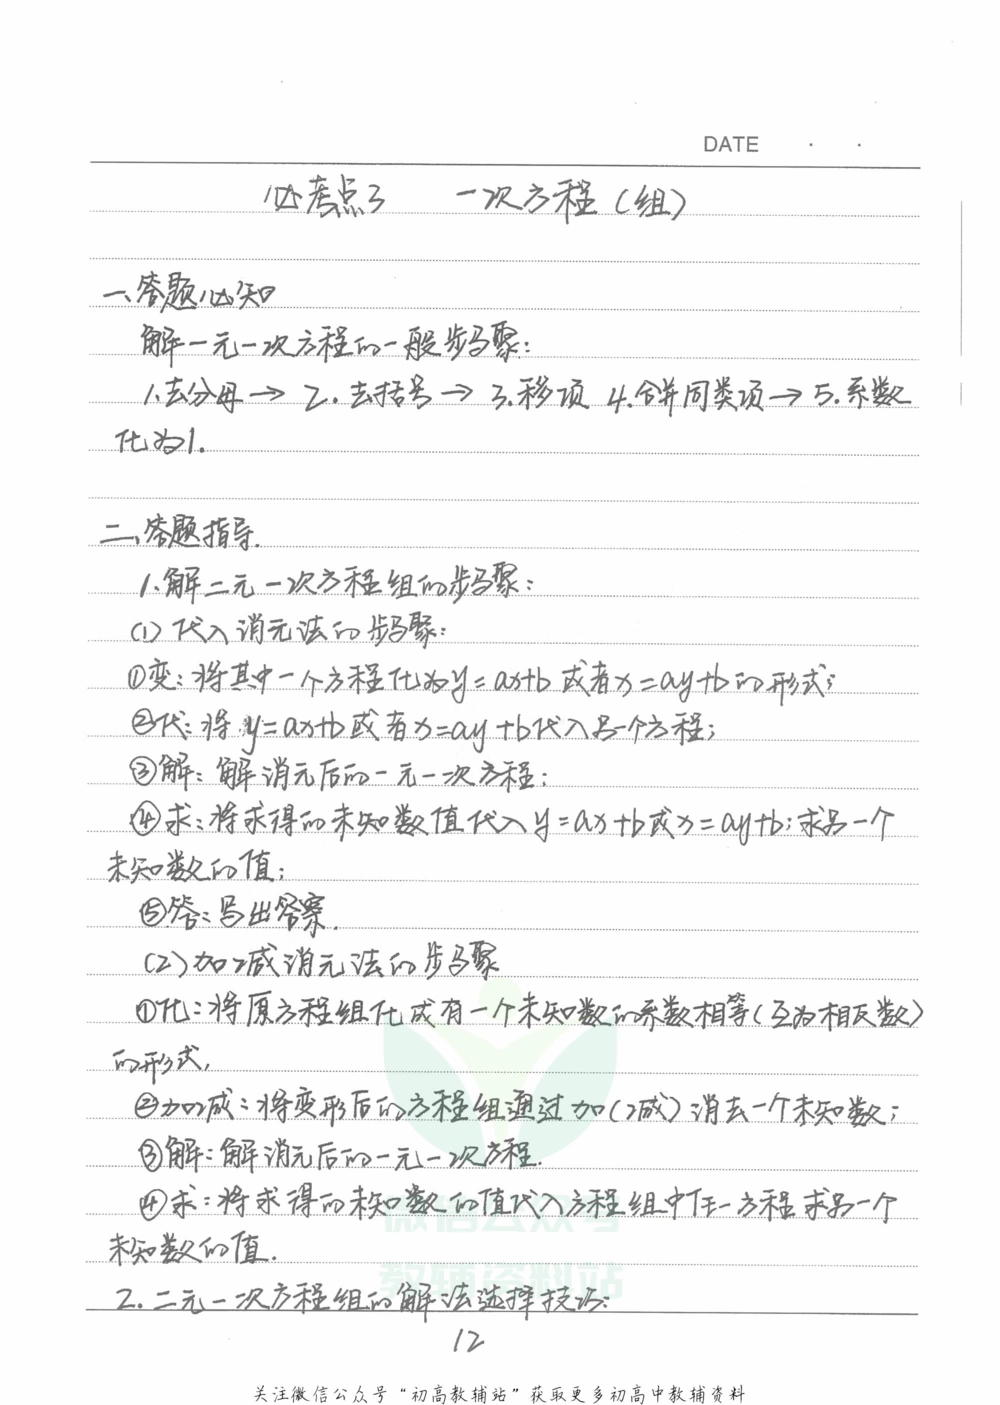 DATE · ·
必考点3 一次方程(组)
一、答题必知
解一元一次方程的一般步骤:
1.去分母→ 2.去括号→ 3.移项 4.合并同类项→5.系数
化为1.
二、答题指导.
1.解二元一次方程组的步骤:
(1)代入消元法的步骤:
①变:将其中一个方程化为y=ax+b或者x=ay+b的形式;
②代:将y=ax+b或者x=ay+b代入另一个方程;
③解:解消元后的一元一次方程;
④求:将求得的未知数值代入y=ax+b或x=ay+b;求另一个
未知数的值;
⑤答:写出答案.
(2)加减消元法的步骤
①化:将原方程组化成有一个未知数的系数相等(互为相反数)
的形式,
②加减:将变形后的方程组通过加(减)消去一个未知数;
③解:解消元后的一元一次方程.
④求:将求得的未知数的值代入方程组中任一方程求另一个
未知数的值.
微信公众号
教辅资料站
2.二元一次方程组的解法选择技巧:
12
关注微信公众号“初高教辅站”获取更多初高中教辅资料